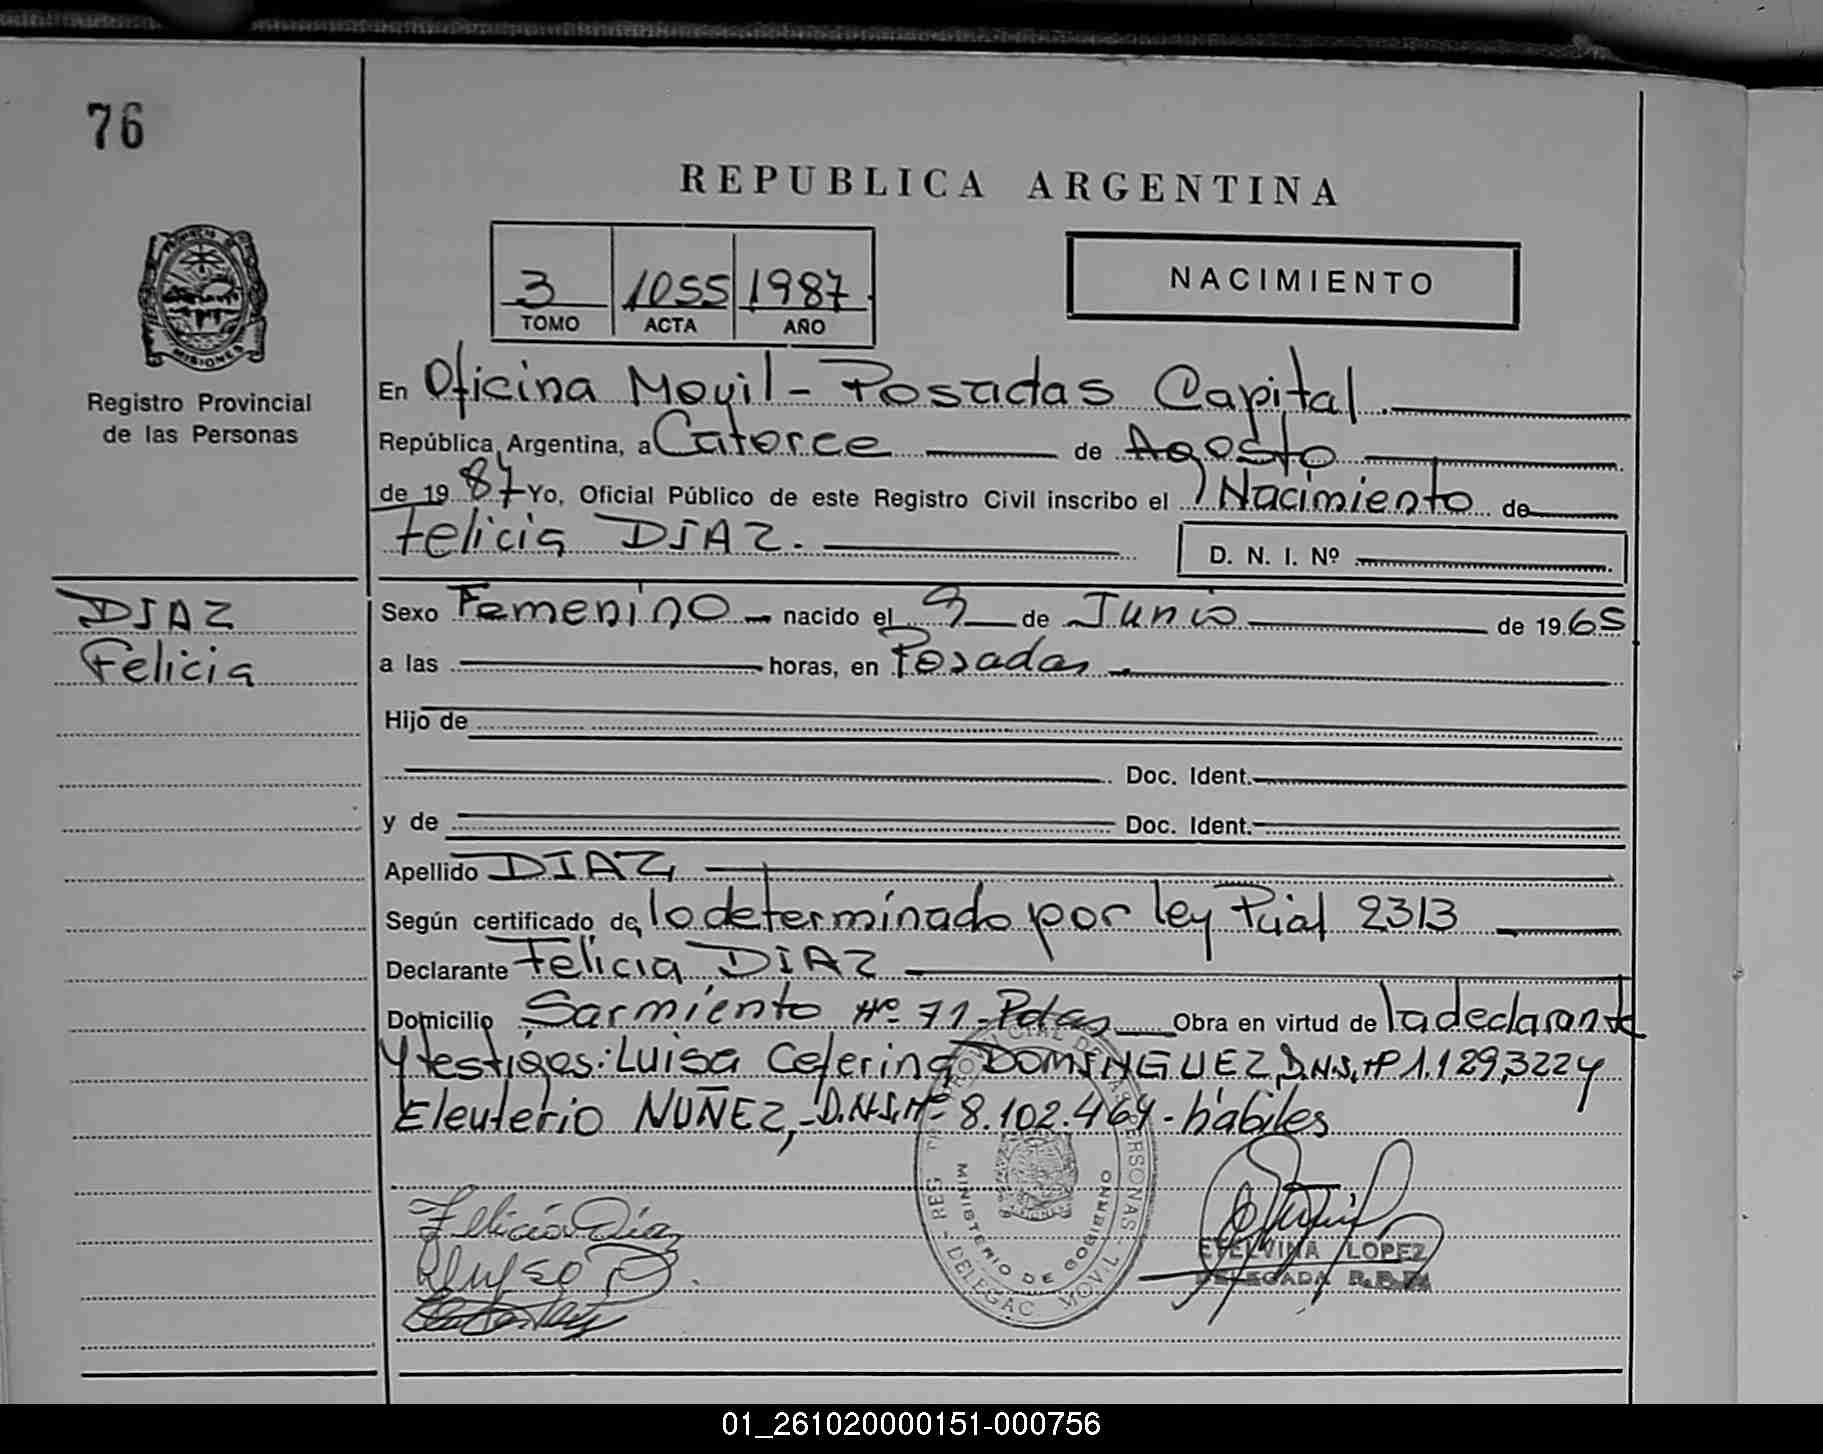 76
REPUBLICA ARGENTINA
3 1055 1987
TOMO ACTA AÑO
NACIMIENTO
PROVINCIA DE
MISIONES
Registro Provincial
de las Personas
En Oficina Movil - Posadas Capital.
República Argentina, a Catorce de Agosto
de 1987 Yo, Oficial Público de este Registro Civil inscribo el Nacimiento de
Felicia DIAZ.
D. N. I. Nº
DIAZ
Felicia
Sexo Femenino nacido el 9 de Junio de 1965
a las horas, en Posadas
Hijo de
Doc. Ident.
y de Doc. Ident.
Apellido DIAZ
Según certificado de lo determinado por ley Pcial 2313
Declarante Felicia DIAZ
Domicilio Sarmiento Nº 71 - Pdas Obra en virtud de la declarante
y testigos: Luisa Ceferina DOMINGUEZ, D.N.I. Nº 1.129,322 y
Eleuterio NUÑEZ, - D.N.I. Nº 8.102.464 - hábiles
Felicia Diaz
REG - PROVINCIAL DE LAS PERSONAS - DELEGAC MOVIL
MINISTERIO DE GOBIERNO
ETELVINA LOPEZ
DELEGADA
01_261020000151-000756